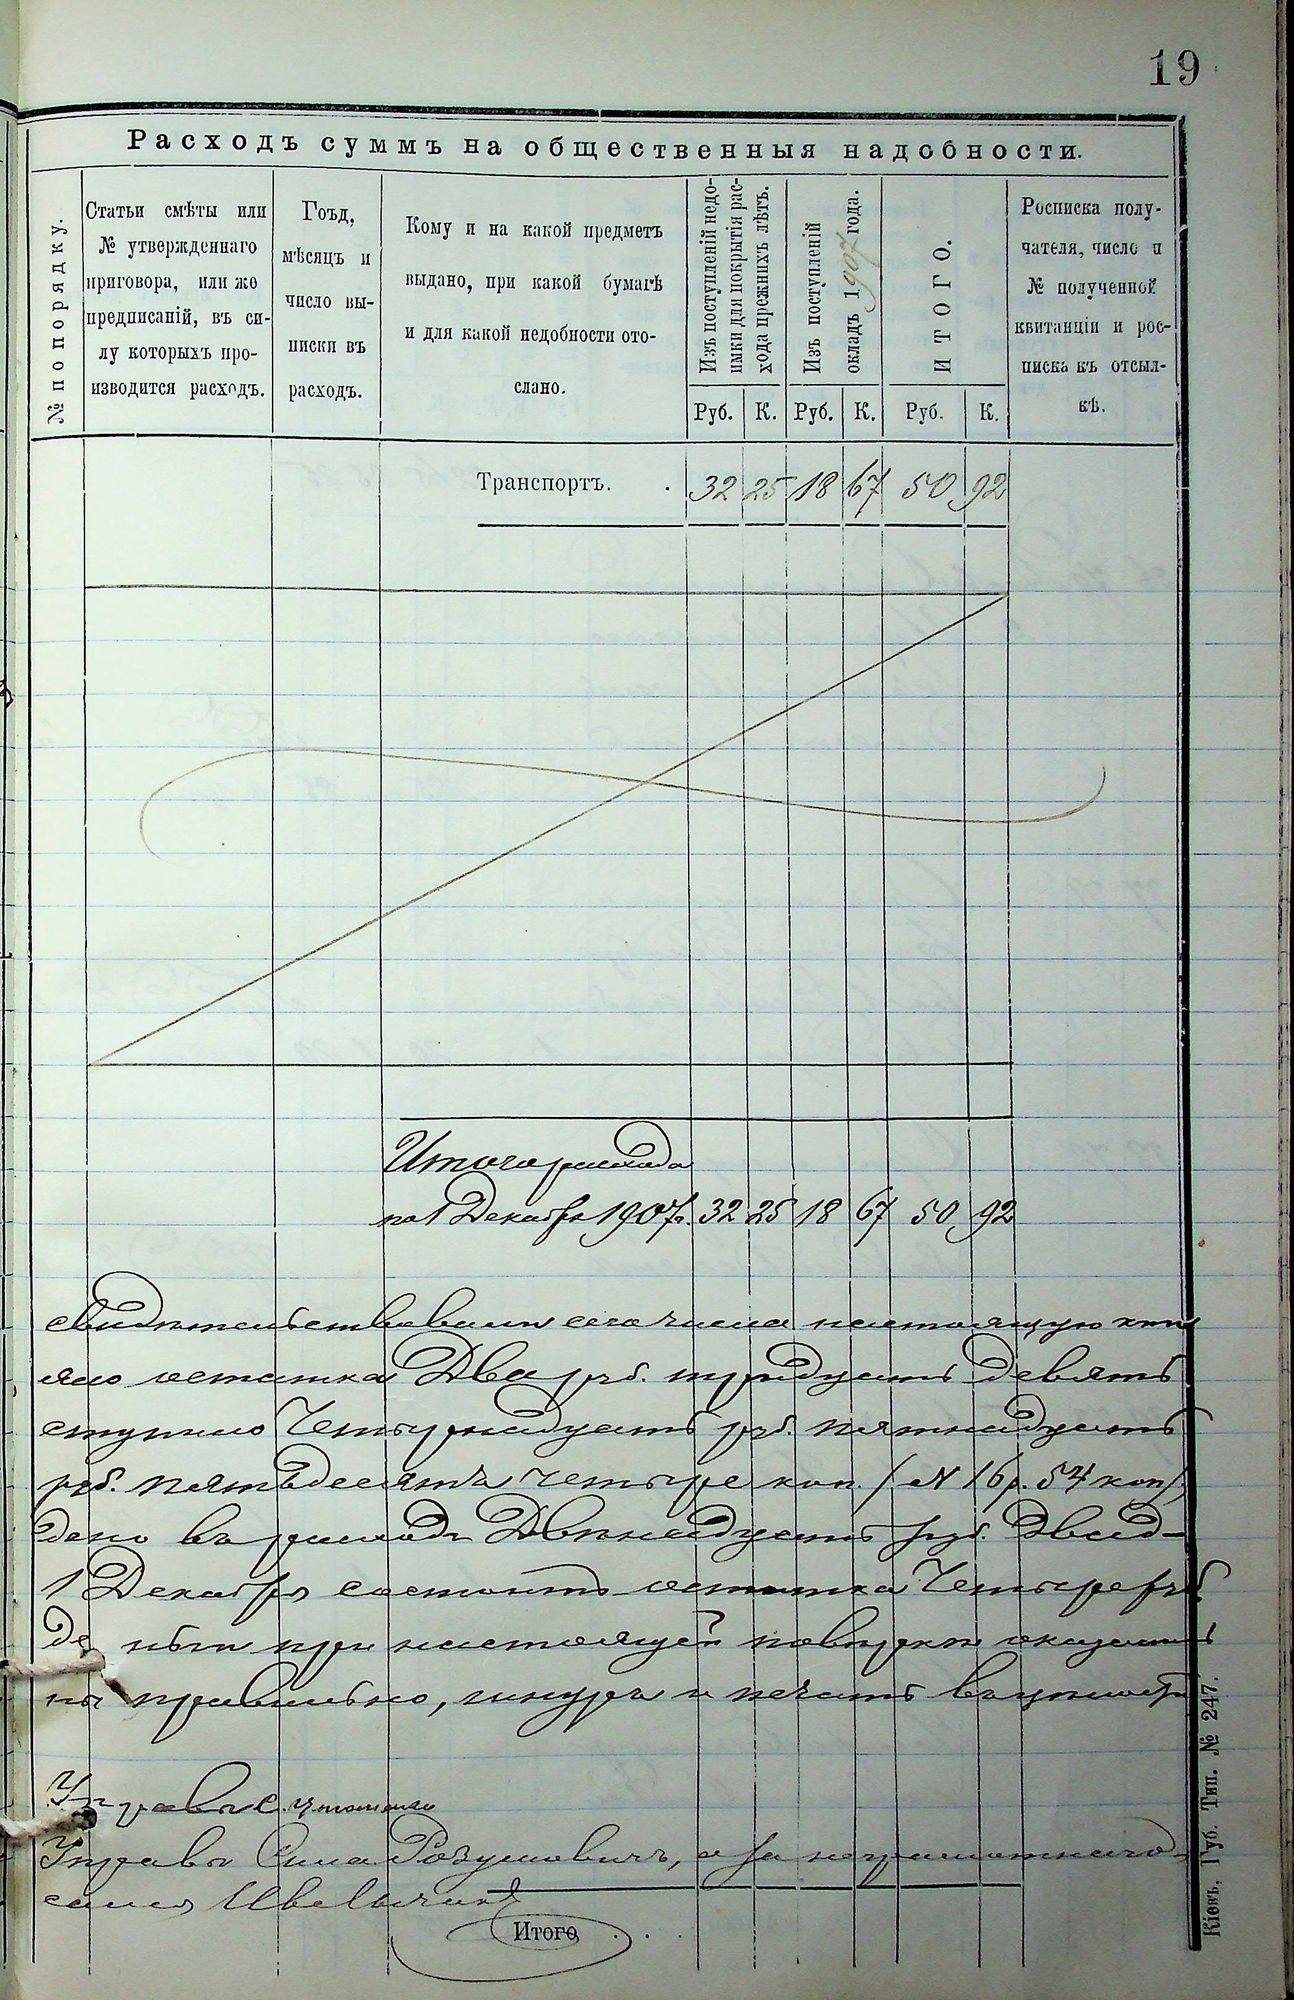 19
Расходъ суммъ на общественныя надобности.
№ по порядку.
Статьи смѣты или
№ утвержденнаго
приговора, или же
предписаній, въ си-
лу которыхъ про-
изводится расходъ.
Гоъд,
мѣсяцъ и
число вы-
писки въ
расходъ.
Кому и на какой предметъ
выдано, при какой бумагѣ
и для какой недобности ото-
слано.
Изъ поступленій недо-
имки для покрытія рас-
хода прежнихъ лѣтъ.
Изъ поступленій
окладъ 1907 года.
ИТОГО.
Росписка полу-
чателя, число и
№ полученной
квитанціи и рос-
писка къ отсыл-
кѣ.
Руб. К. Руб. К. Руб. К.
Транспортъ. . 32 25 18 67 50 92
Итого расхода
по 1 Декабря 1907г. 32 25 18 67 50 92
свидѣтельствовали сего числа настоящую кни
яло остатка Два руб. тридцать девять
ступило Четырнадцать руб. пятнадцать
руб. пятьдесятъ четыре коп. / 16 р. 54 коп/,
дано въ расходъ Двѣнадцать руб. двад-
1 Декабря состоитъ остатка Четыре руб
при настоящей повѣркѣ
ны правильно, шнуръ и печать въ цѣлости
Управы
Управы а за неграмотнаго
Итого . . .
Кіевъ, Губ. Тип. № 247.